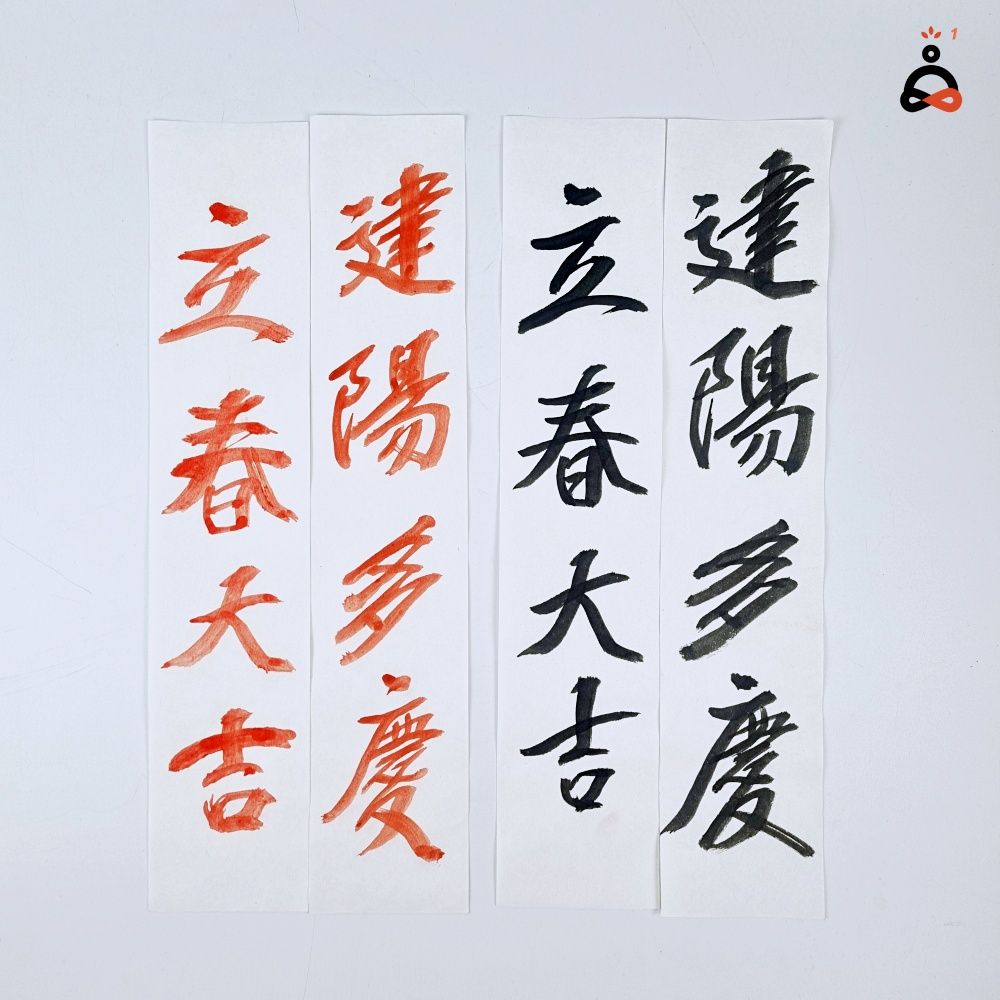 立春大吉
建陽多慶
立春大吉
建陽多慶
1